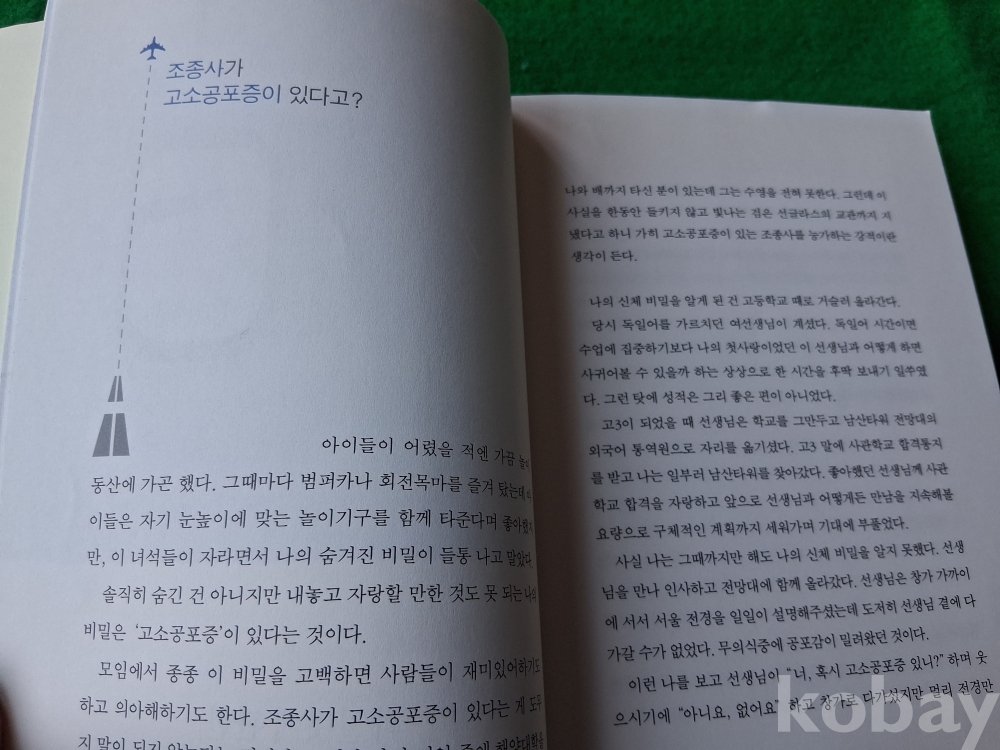 조종사가
고소공포증이 있다고?
아이들이 어렸을 적엔 가끔 놀이
동산에 가곤 했다. 그때마다 범퍼카나 회전목마를 즐겨 탔는데
이들은 자기 눈높이에 맞는 놀이기구를 함께 타준다며 좋아했지
만, 이 녀석들이 자라면서 나의 숨겨진 비밀이 들통 나고 말았다.
솔직히 숨긴 건 아니지만 내놓고 자랑할 만한 것도 못 되는 나의
비밀은 ‘고소공포증’이 있다는 것이다.
모임에서 종종 이 비밀을 고백하면 사람들이 재미있어하기도
하고 의아해하기도 한다. 조종사가 고소공포증이 있다는 게 도무
지 말이 되기
나와 배까지 타신 분이 있는데 그는 수영을 전혀 못한다. 그런데 이
사실을 한동안 들키지 않고 빛나는 검은 선글라스의 교관까지 지
냈다고 하니 가히 고소공포증이 있는 조종사를 능가하는 강적이란
생각이 든다.
나의 신체 비밀을 알게 된 건 고등학교 때로 거슬러 올라간다.
당시 독일어를 가르치던 여선생님이 계셨다. 독일어 시간이면
수업에 집중하기보다 나의 첫사랑이었던 이 선생님과 어떻게 하면
사귀어볼 수 있을까 하는 상상으로 한 시간을 후딱 보내기 일쑤였
다. 그런 탓에 성적은 그리 좋은 편이 아니었다.
고3이 되었을 때 선생님은 학교를 그만두고 남산타워 전망대의
외국어 통역원으로 자리를 옮기셨다. 고3 말에 사관학교 합격통지
를 받고 나는 일부러 남산타워를 찾아갔다. 좋아했던 선생님께 사관
학교 합격을 자랑하고 앞으로 선생님과 어떻게든 만남을 지속해볼
요량으로 구체적인 계획까지 세워가며 기대에 부풀었다.
사실 나는 그때까지만 해도 나의 신체 비밀을 알지 못했다. 선생
님을 만나 인사하고 전망대에 함께 올라갔다. 선생님은 창가 가까이
에 서서 서울 전경을 일일이 설명해주셨는데 도저히 선생님 곁에 다
가갈 수가 없었다. 무의식중에 공포감이 밀려왔던 것이다.
이런 나를 보고 선생님이 “너, 혹시 고소공포증 있니?” 하며 웃
으시기에 “아니요, 없어요” 하고 창가로 다가섰지만 멀리 전경만
kobay